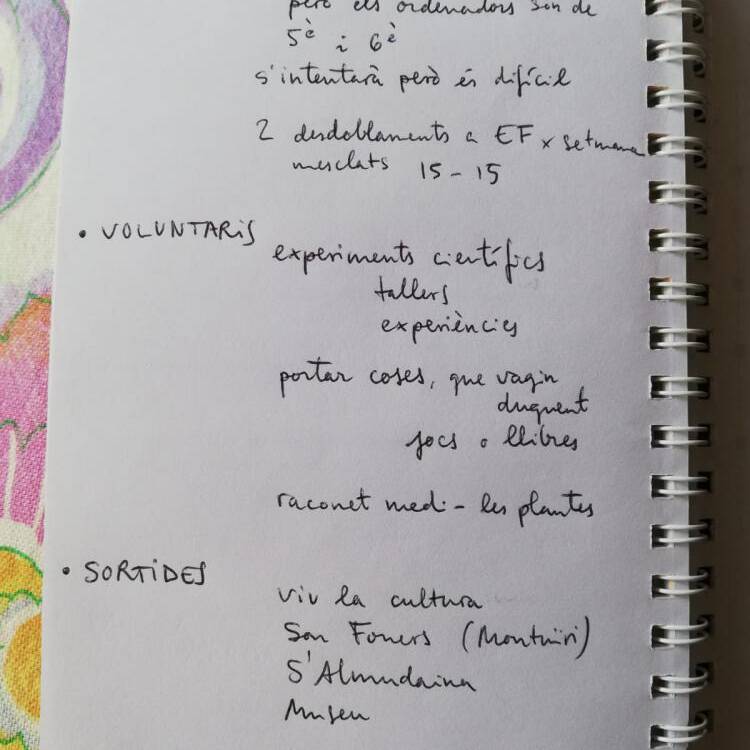 però els ordenadors són de
5è i 6è
s'intentarà però és difícil
2 desdoblaments a EF x setmana
mesclats 15-15
• VOLUNTARIS
experiments científics
tallers
experiències
portar coses, que vagin
duguent
jocs o llibres
raconet medi - les plantes
• SORTIDES
viu la cultura
Son Forners (Montuïri)
S'Almudaina
Museu